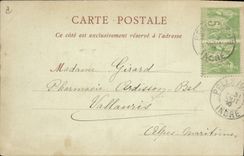 CARTE POSTALE
Ce côté est exclusivement réservé à l'adresse
Madame Girard
Pharmacie Ardisson-Bel
Vallauris
Alpes-Maritimes
INDRE
INDRE